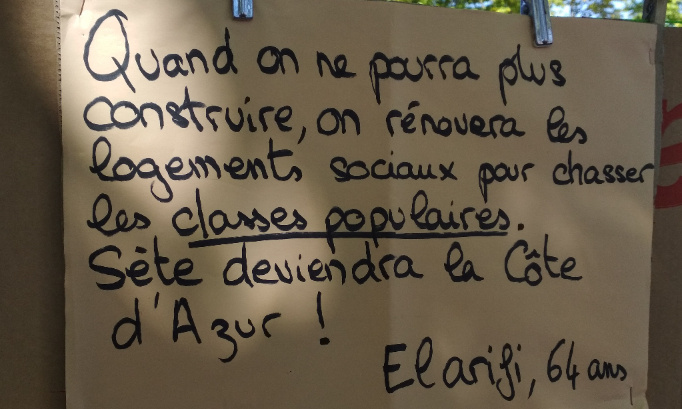 Quand on ne pourra plus
construire, on rénovera les
logements sociaux pour chasser
les classes populaires.
Sète deviendra la Côte
d'Azur !
Elarifi, 64 ans